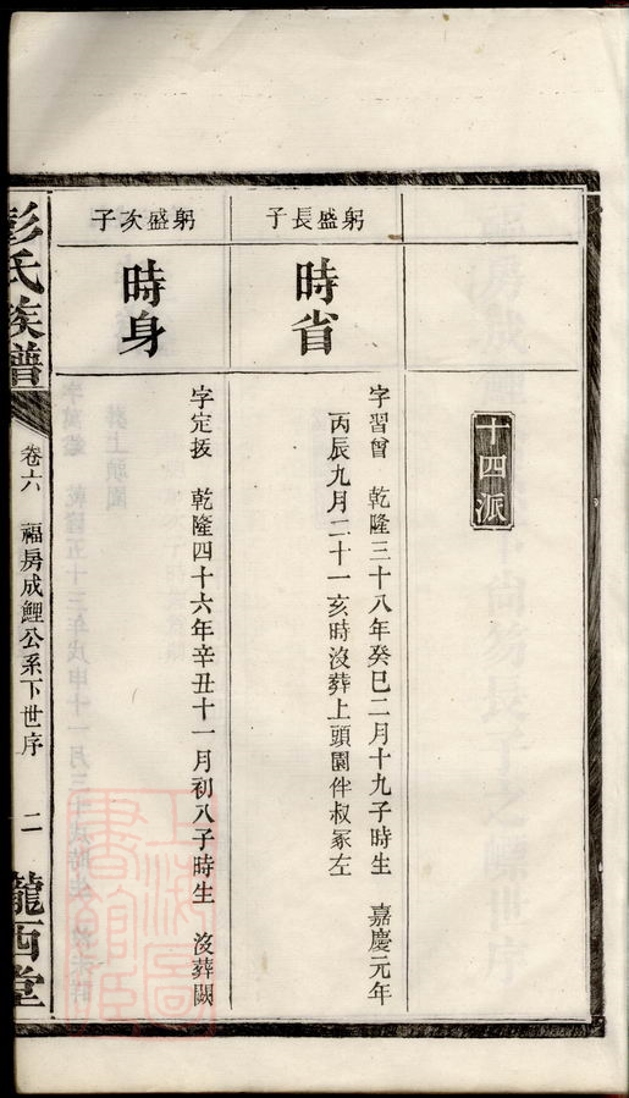 十四派
躬盛長子
時省
字習曾 乾隆三十八年癸巳二月十九子時生 嘉慶元年
丙辰九月二十一亥時沒葬上頭園伴叔冢左
躬盛次子
時身
字定援 乾隆四十六年辛丑十一月初八子時生 沒葬闕
彭氏族譜 卷六 福房成鯉公系下世序 二 隴西堂
上海圖書館藏